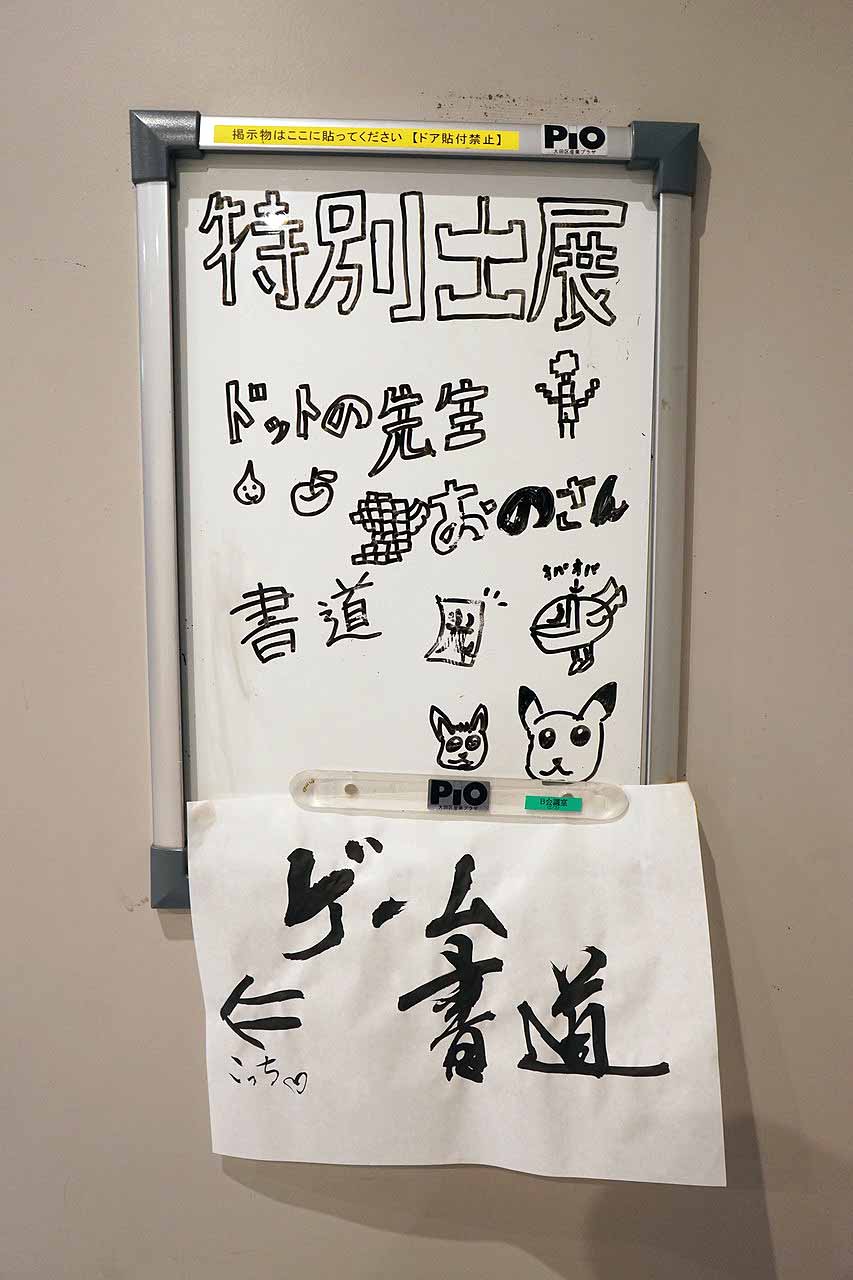 掲示物はここに貼ってください 【ドア貼付禁止】
PiO
大田区産業プラザ
特別出展
ドットの先生
おのさん
オパオパ
書道
光
PiO
大田区産業プラザ
B会議室
ゲーム
書道
こっち